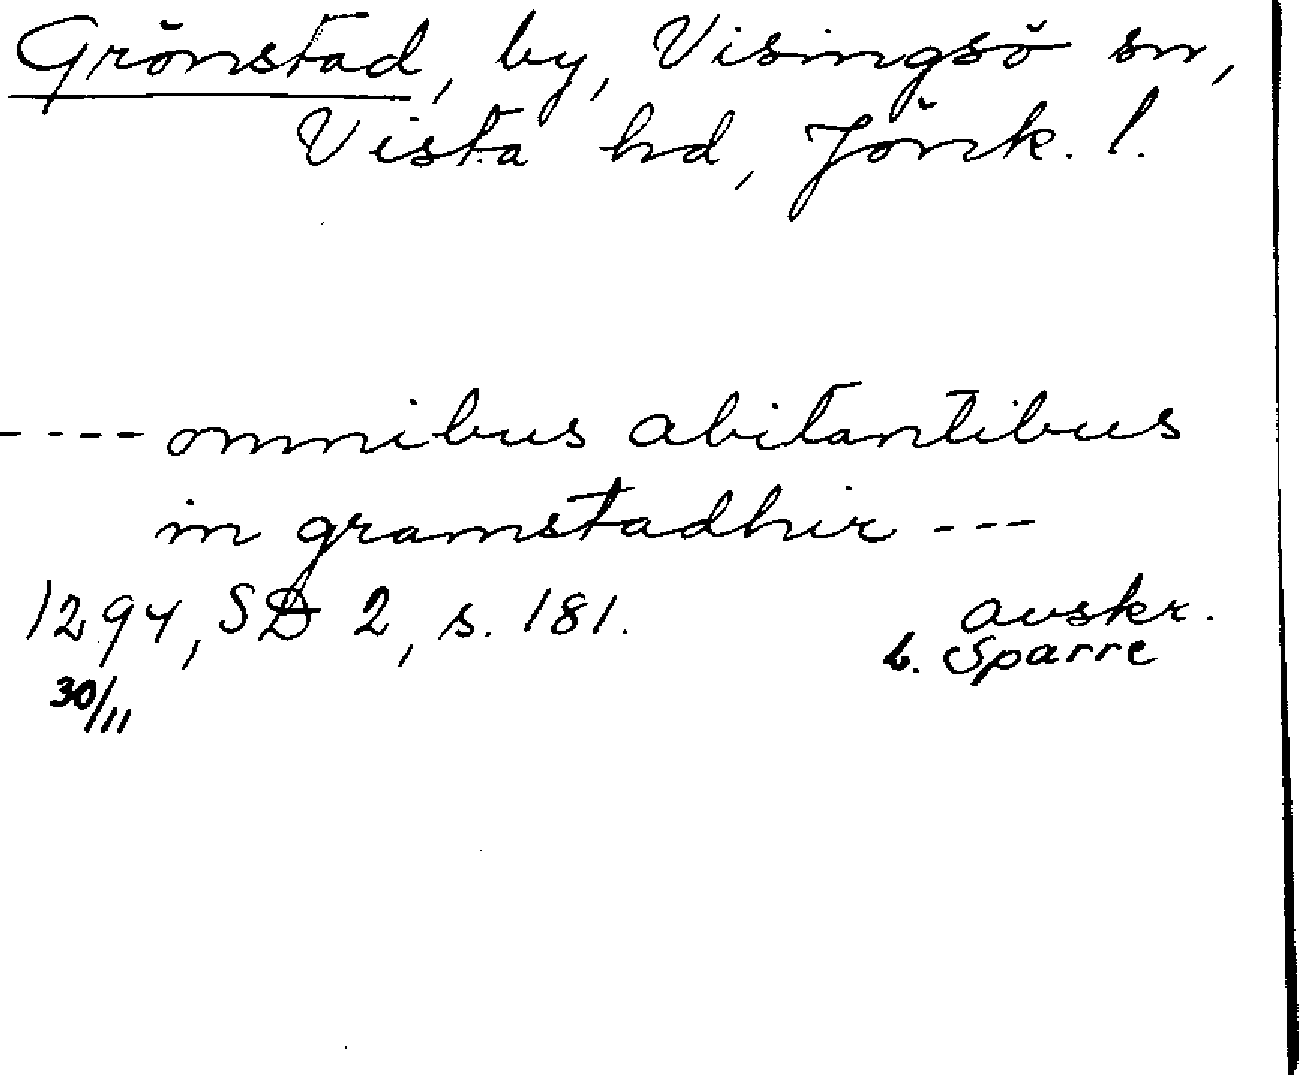 Grönstad, by, Visingsö sn,
Vista hd, Jönk. l.
---- omnibus abitantibus
in granstadhir ---
1294, SD 2, s. 181. avskr.
30/11 b. Sparre